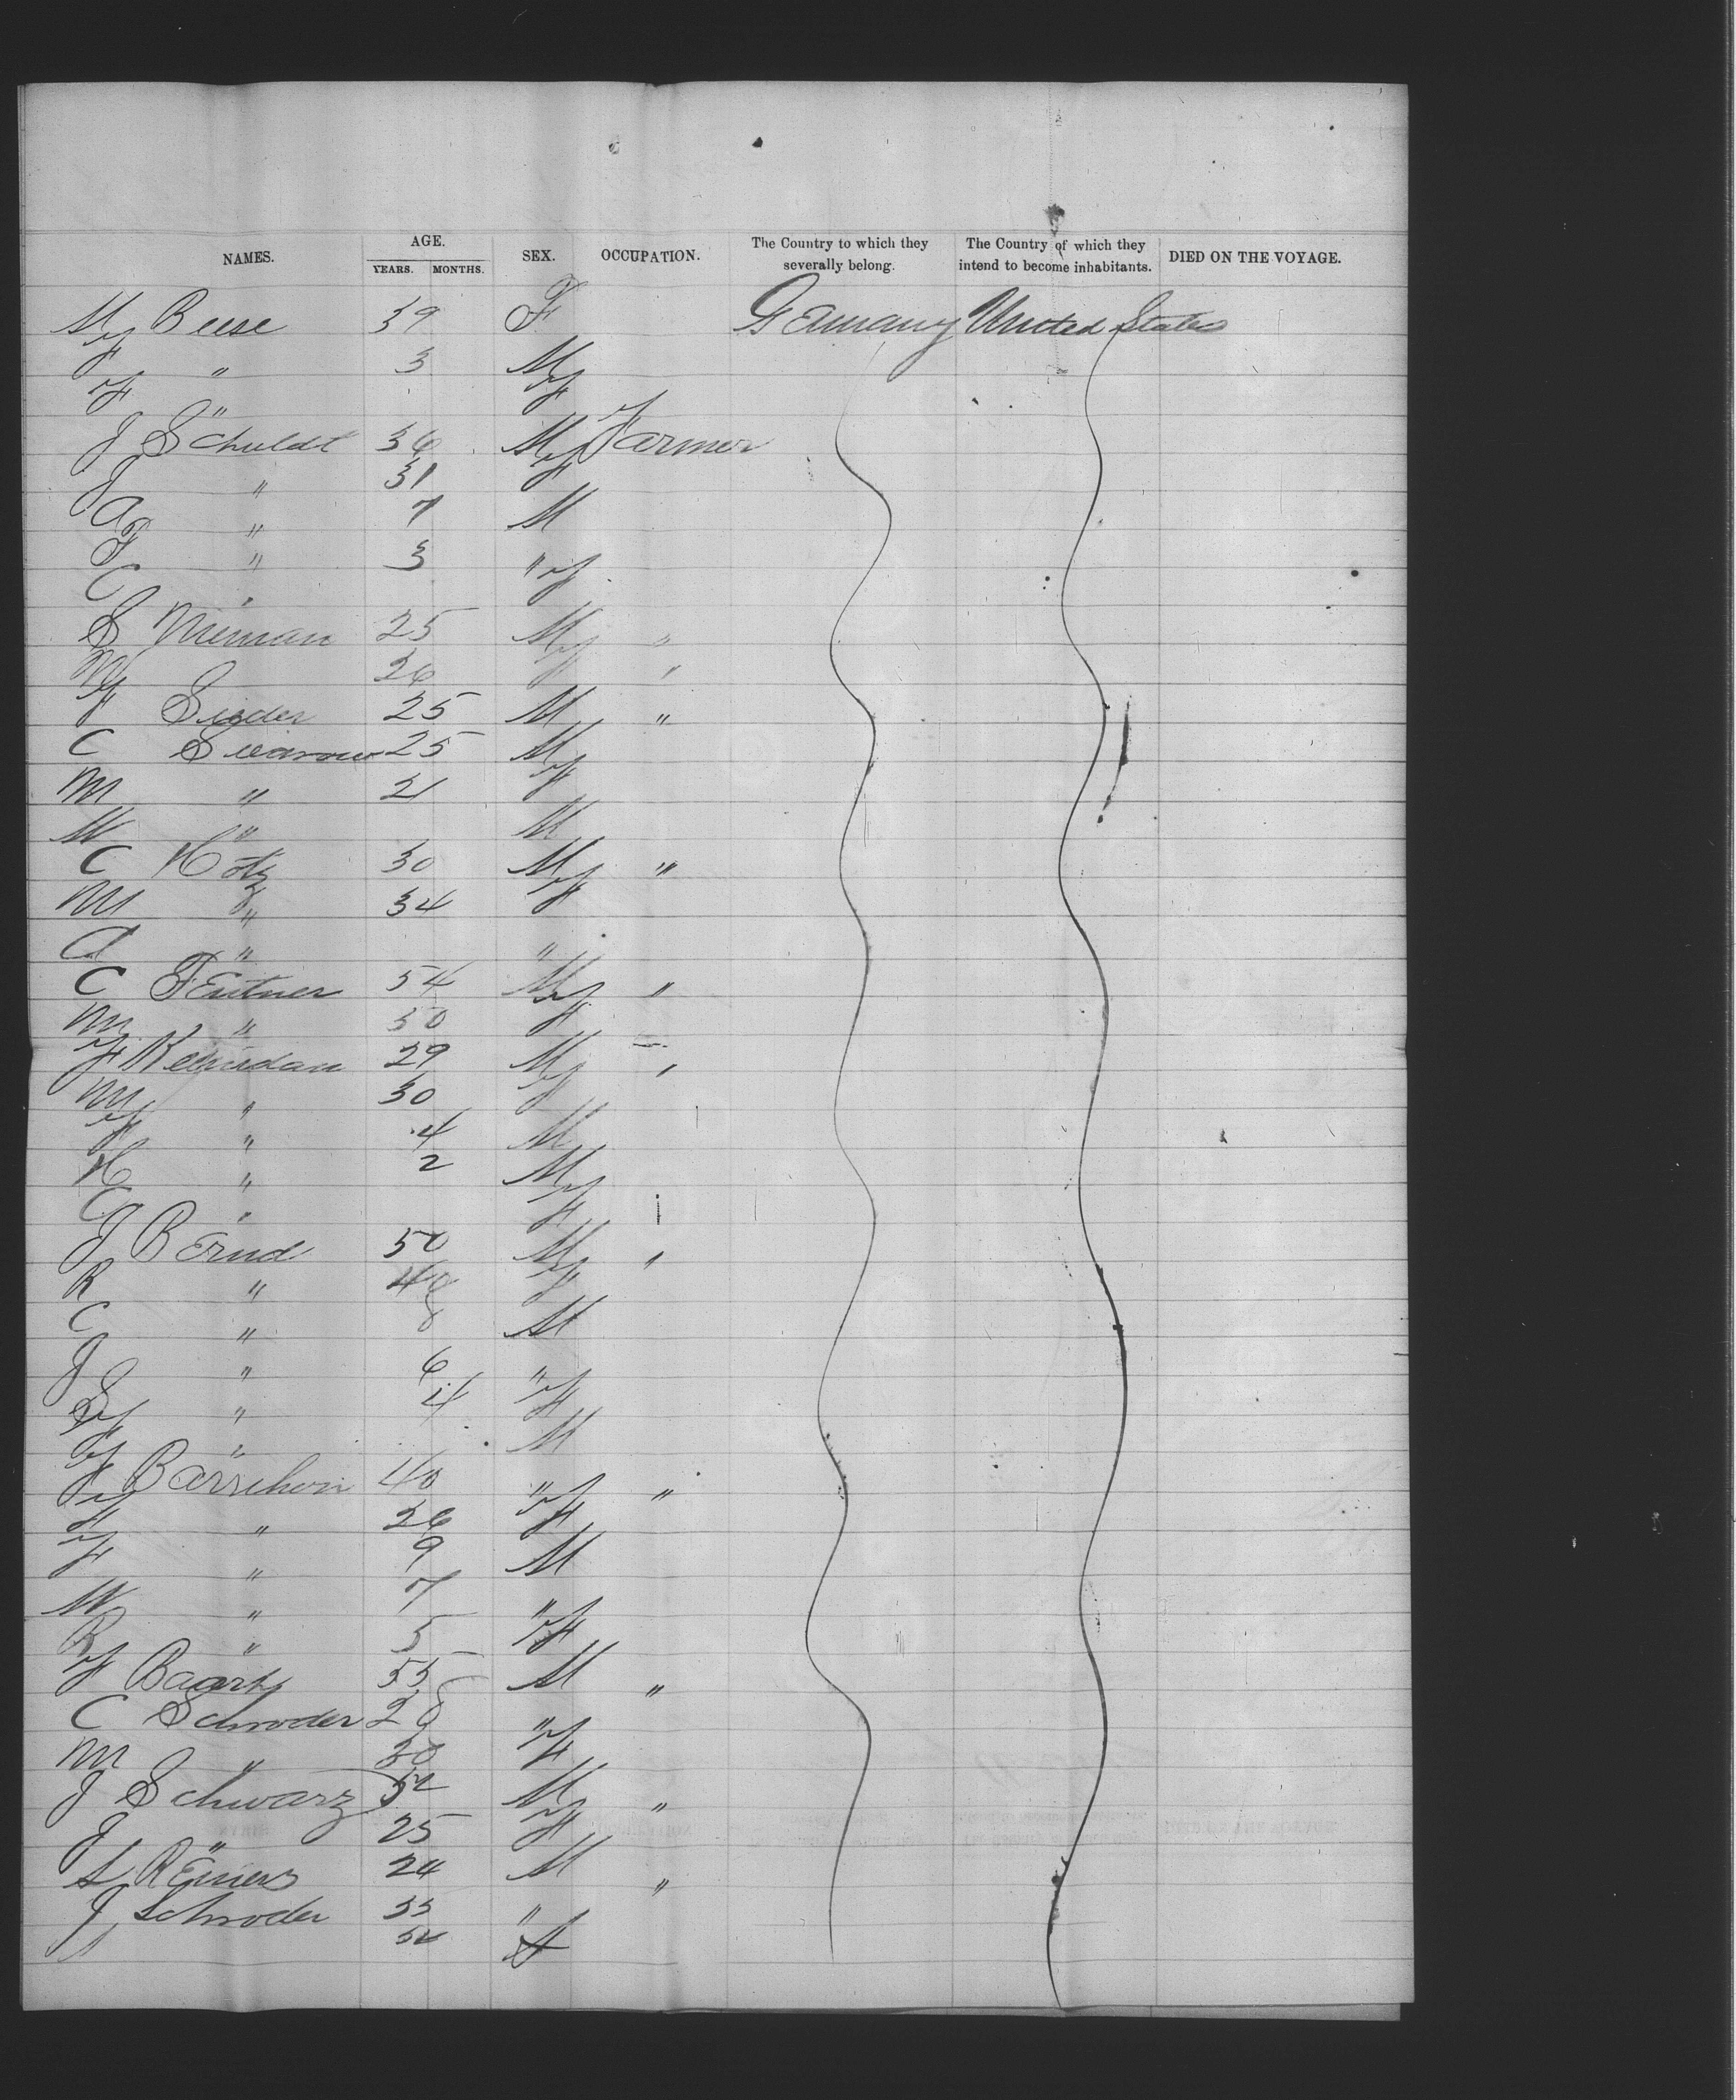 NAMES. AGE. YEARS. MONTHS. SEX. OCCUPATION. The Country to which they severally belong. The Country of which they intend to become inhabitants. DIED ON THE VOYAGE.
M Beese 39 F Germany United States
F " 3 M
F " F
J Schuldt 36 M Farmer
J " 31 F
A " 7 M
F " 3 "
C " F
S 25 M "
M 26 F "
F 25 M "
C 25 M
M " 21 F
W " M
C Hotz 30 M "
M " 34 F
A " "
C 54 M "
M " 50 F
F 29 M "
M " 30 F
F " 4 M
H " 2 M
C " F
J Bernd 50 M "
R " 40 F
C " 8 M
J " 6 "
S " 4 F
F " M
F 40 " "
F " 26 F
F " 9 M
W " 7 "
R " 5 F
F Baartz 55 M "
C Schroder 28 "
M " 30 F
J Schwarz 52 M "
J " 25 F
L Reiners 24 M "
J Schroder 33 "
F